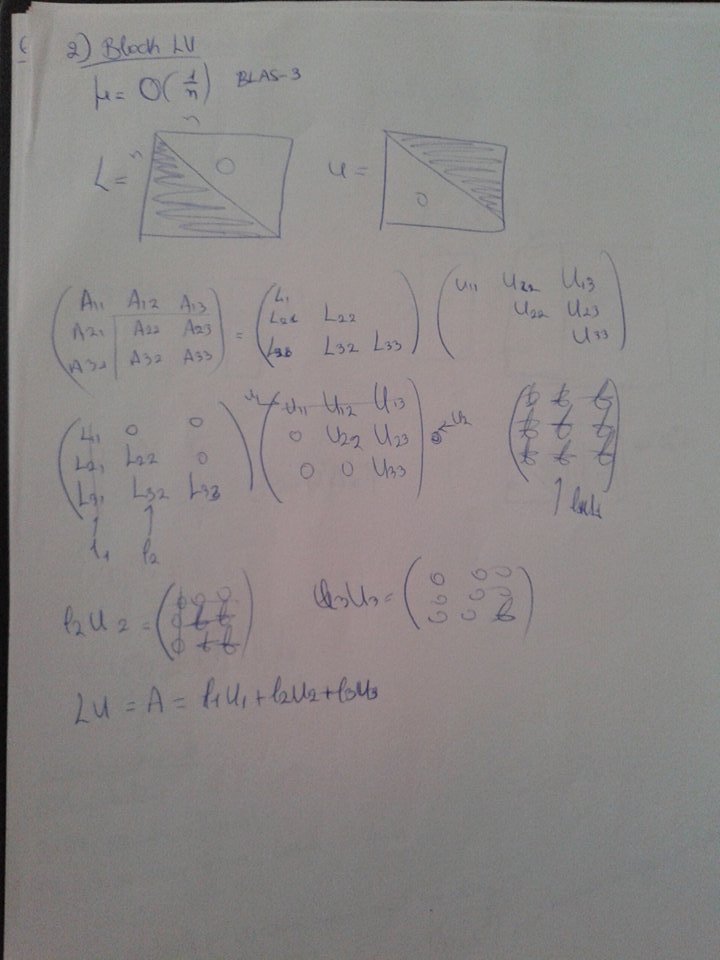 2) Block LU
μ = O(1/n) BLAS-3
n
L = n 0
U = 0
A11 A12 A13
A21 A22 A23
A32 A32 A33
=
L1
L21 L22
L32 L33
U11 U22 U13
U22 U23
U33
L1 0 0
L21 L22 0
L31 L32 L33
U11 U12 U13
0 U22 U23
0 0 U33
u2
l1 l2
l2 U2 =
0 0 0
0
0
U3 =
0 0 0
0 0
0 0
LU = A = l1U1 + l2U2 + l3U3